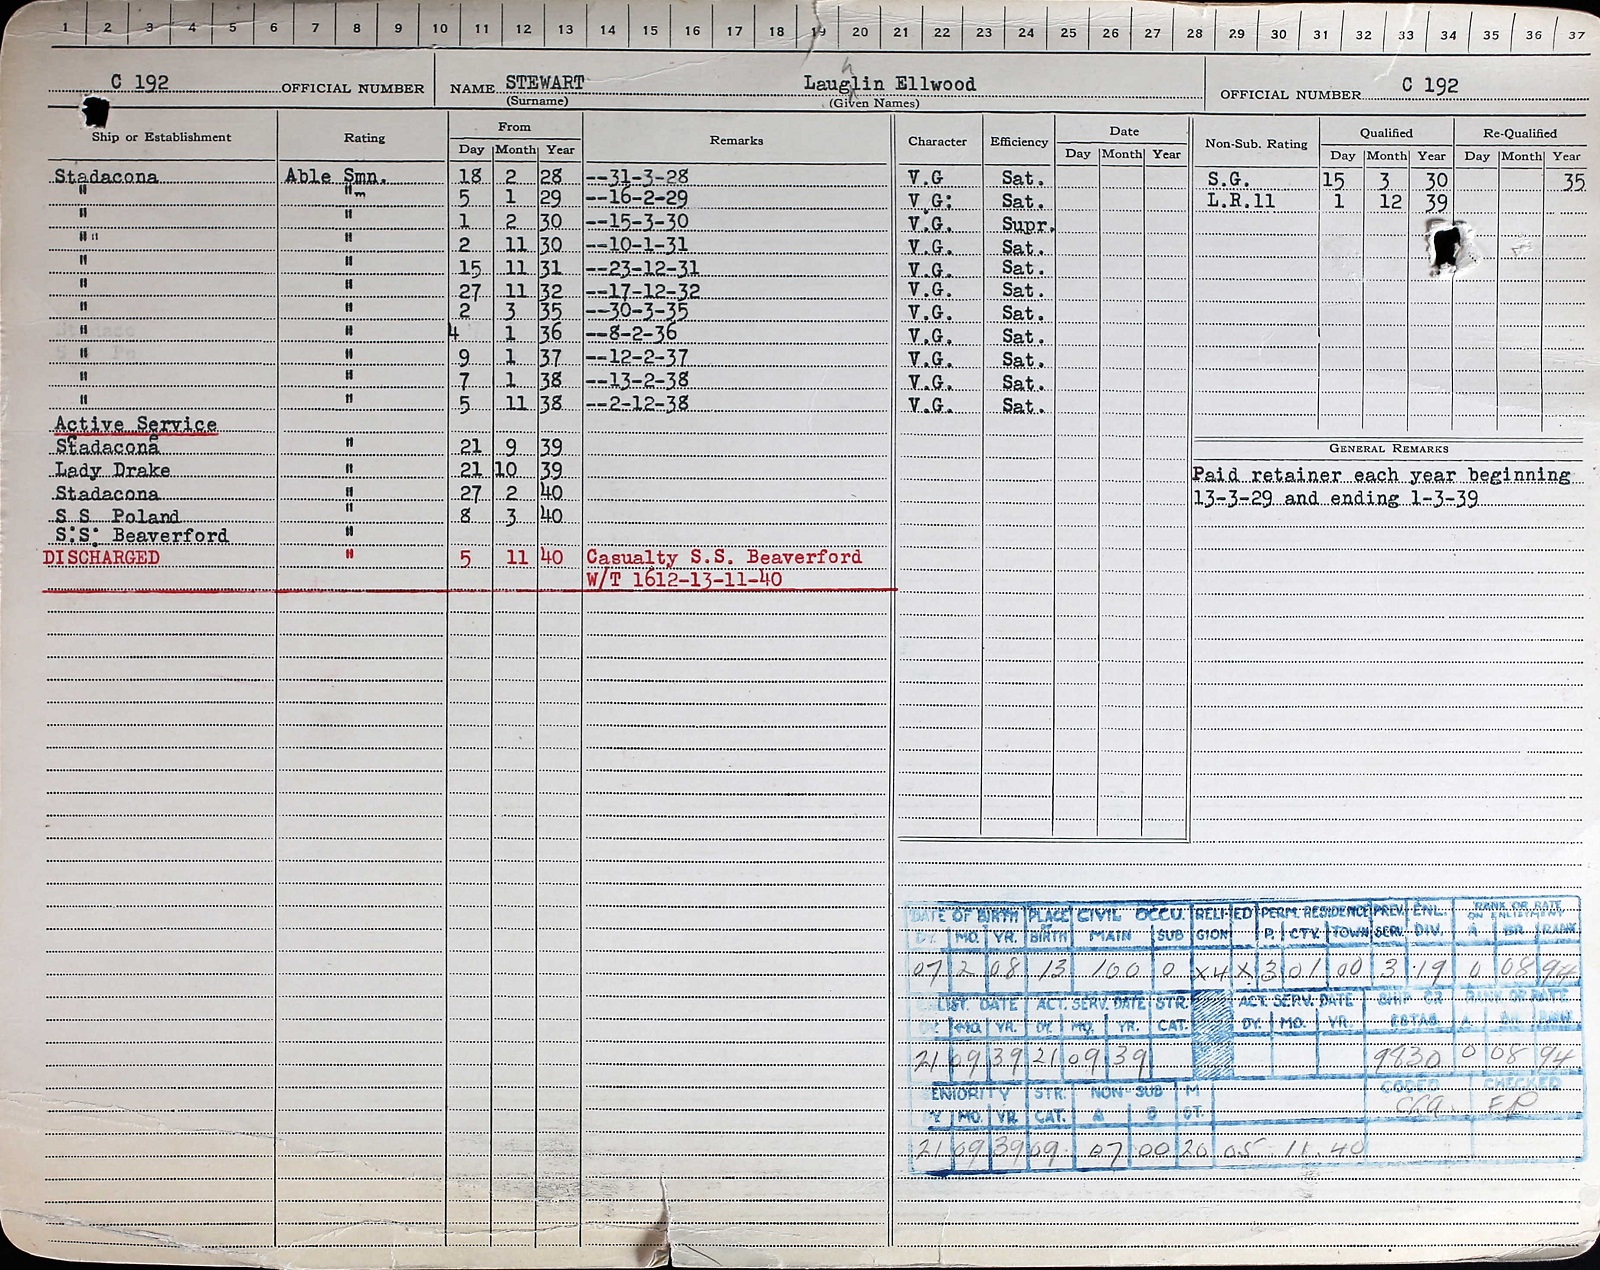 1 2 3 4 5 6 7 8 9 10 11 12 13 14 15 16 17 18 19 20 21 22 23 24 25 26 27 28 29 30 31 32 33 34 35 36 37
C 192 OFFICIAL NUMBER NAME STEWART Lauglin Ellwood OFFICIAL NUMBER C 192
h
(Surname) (Given Names)
Ship or Establishment Rating From Remarks Character Efficiency Date Non-Sub. Rating Qualified Re-Qualified
Day Month Year Day Month Year Day Month Year Day Month Year
Stadacona Able Smn. 18 2 28 --31-3-28 V.G Sat. S.G. 15 3 30 35
" " 5 1 29 --16-2-29 V.G: Sat. L.R.11 1 12 39
" " 1 2 30 --15-3-30 V.G. Supr.
" " 2 11 30 --10-1-31 V.G. Sat.
" " 15 11 31 --23-12-31 V.G. Sat.
" " 27 11 32 --17-12-32 V.G. Sat.
" " 2 3 35 --30-3-35 V.G. Sat.
" " 4 1 36 --8-2-36 V.G. Sat.
" " 9 1 37 --12-2-37 V.G. Sat.
" " 7 1 38 --13-2-38 V.G. Sat.
" " 5 11 38 --2-12-38 V.G. Sat.
Active Service
Stadacona " 21 9 39
Lady Drake " 21 10 39
Stadacona " 27 2 40
S S Poland " 8 3 40
S.S. Beaverford "
DISCHARGED " 5 11 40 Casualty S.S. Beaverford
W/T 1612-13-11-40
GENERAL REMARKS
Paid retainer each year beginning
13-3-29 and ending 1-3-39
DATE OF BIRTH PLACE CIVIL OCCU. RELI- ED PERM. RESIDENCE PREV. ENL. RANK OR RATE
ON ENLISTMENT
DY. MO. YR. BIRTH MAIN SUB GION P. CTY. TOWN SERV. DIV. A BR RANK
07 2 08 13 100 0 X4 X 3 01 00 3 19 0 08 94
LIST. DATE ACT. SERV. DATE STR. ACT. SERV. DATE SHIP OR RANK OR RATE
DY. MO. YR. DY. MO. YR. CAT. DY. MO. YR. ESTAB. A. BR. RANK
21 09 39 21 09 39 9830 0 08 94
SENIORITY STR. NON-SUB M CODED CHECKED
DY MO. YR. CAT. A B ST. EP
21 09 39 09 07 00 20 05 11 40